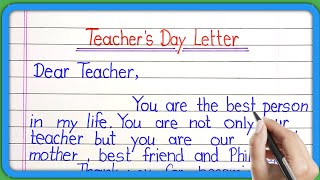 Teacher's Day Letter
Dear Teacher,
You are the best person
in my life. You are not only
teacher but you are our
mother, best friend and
Thank you for